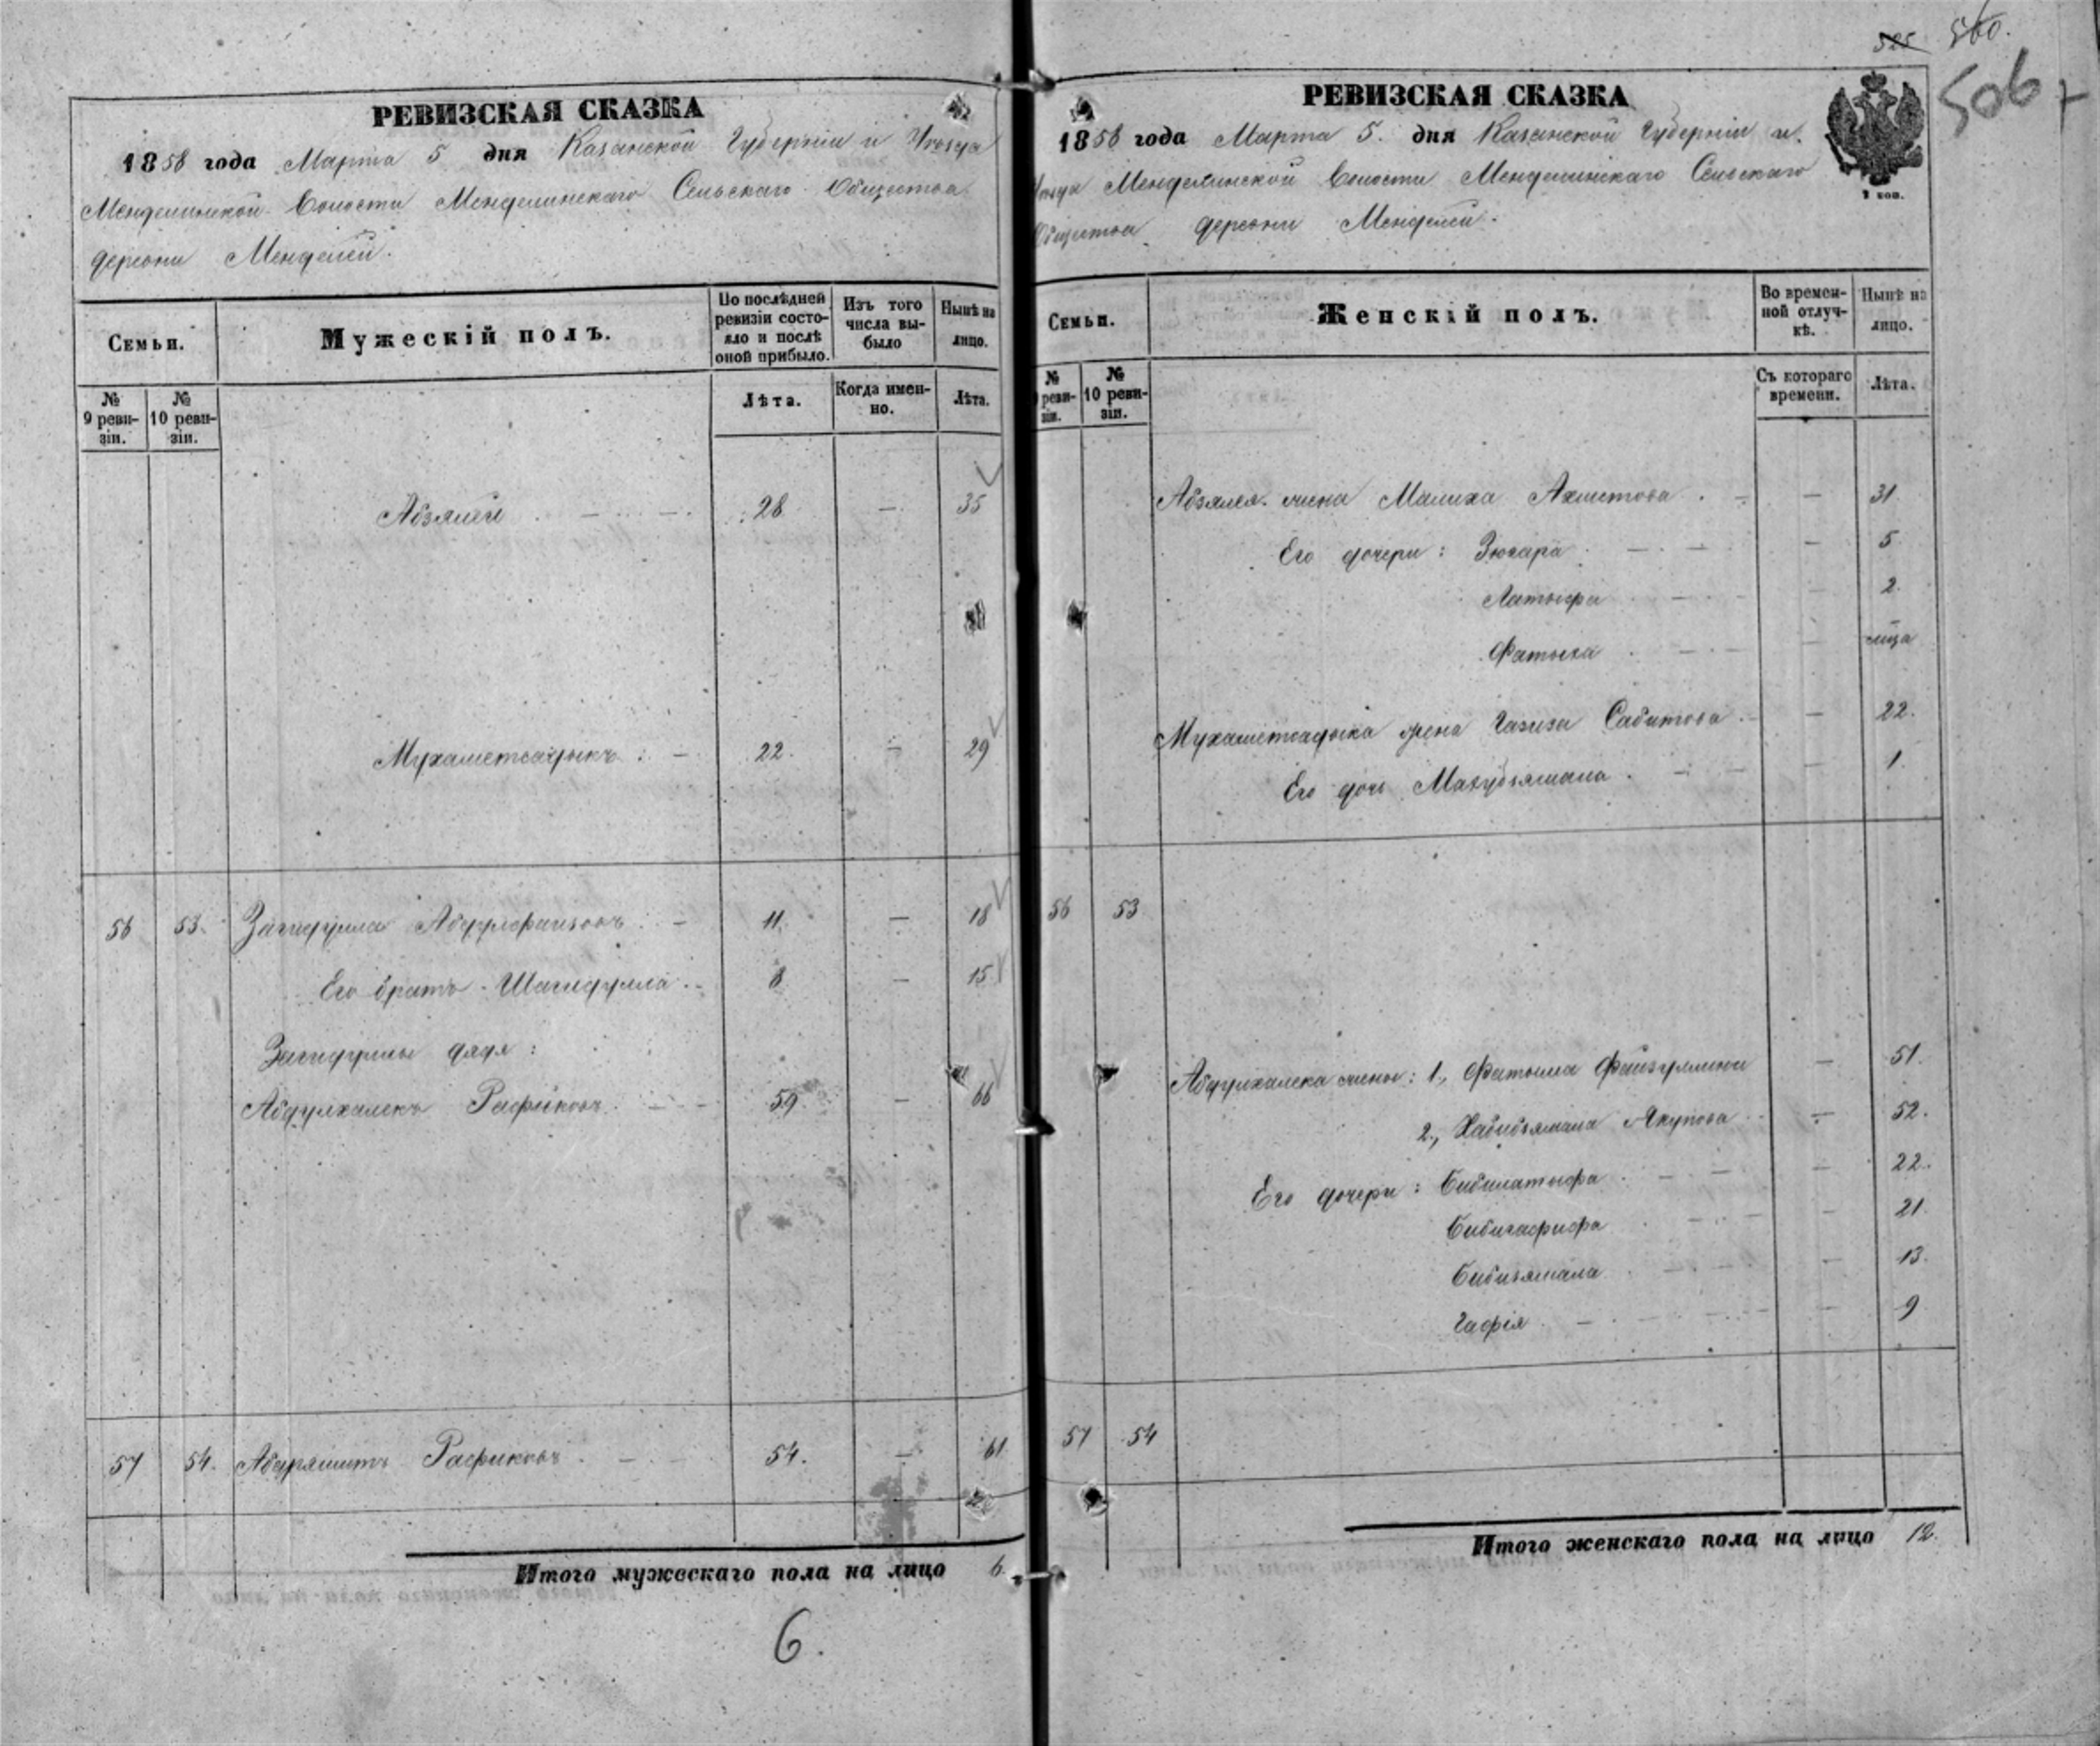 525 560.
506
РЕВИЗСКАЯ СКАЗКА
1858 года Марта 5 дня Казанской Губерніи и Уѣзда
Менделинской Волости Менделинскаго Сельскаго Общества
деревни Менделей.
Семьи.
Мужескій полъ.
По послѣдней ревизіи состояло и послѣ оной прибыло.
Изъ того числа выбыло
Нынѣ на лицо.
№ 9 ревизіи.
№ 10 ревизіи.
Лѣта.
Когда именно.
Лѣта.
Абзялей 28 — 35
Мухаметсадыкъ 22. — 29
56 53. Загидулла Абдулфаизовъ 11. — 18
Его братъ Шагидулла 8 — 15
Загидуллы дядя:
Абдулхалекъ Рафиковъ 59 — 66
57 54. Абдряшитъ Рафиковъ 54. — 61
Итого мужескаго пола на лицо 6.
6.
РЕВИЗСКАЯ СКАЗКА
1858 года Марта 5. дня Казанской Губерніи и
Уѣзда Менделинской Волости Менделинскаго Сельскаго
Общества деревни Менделей.
2 коп.
Семьи.
Женскій полъ.
Во временной отлучкѣ.
Нынѣ на лицо.
№ 9 ревизіи.
№ 10 ревизіи.
Съ котораго времени.
Лѣта.
Абзялея жена Малиха Ахметова — 31
Его дочери: Зюгара — 5
Латыфа — 2
Фатыха —
Мухаметсадыка жена Газиза Сабитова — 22.
Его дочь — 1.
56 53
Абдулхалека жены: 1., Фатыма Файзуллина — 51.
2., Хабибзямала Якупова — 52.
Его дочери: Бибилатыфа — 22.
Бибигафифа — 21
Бибизямала — 13.
Гафія — 9
57 54
Итого женскаго пола на лицо 12.